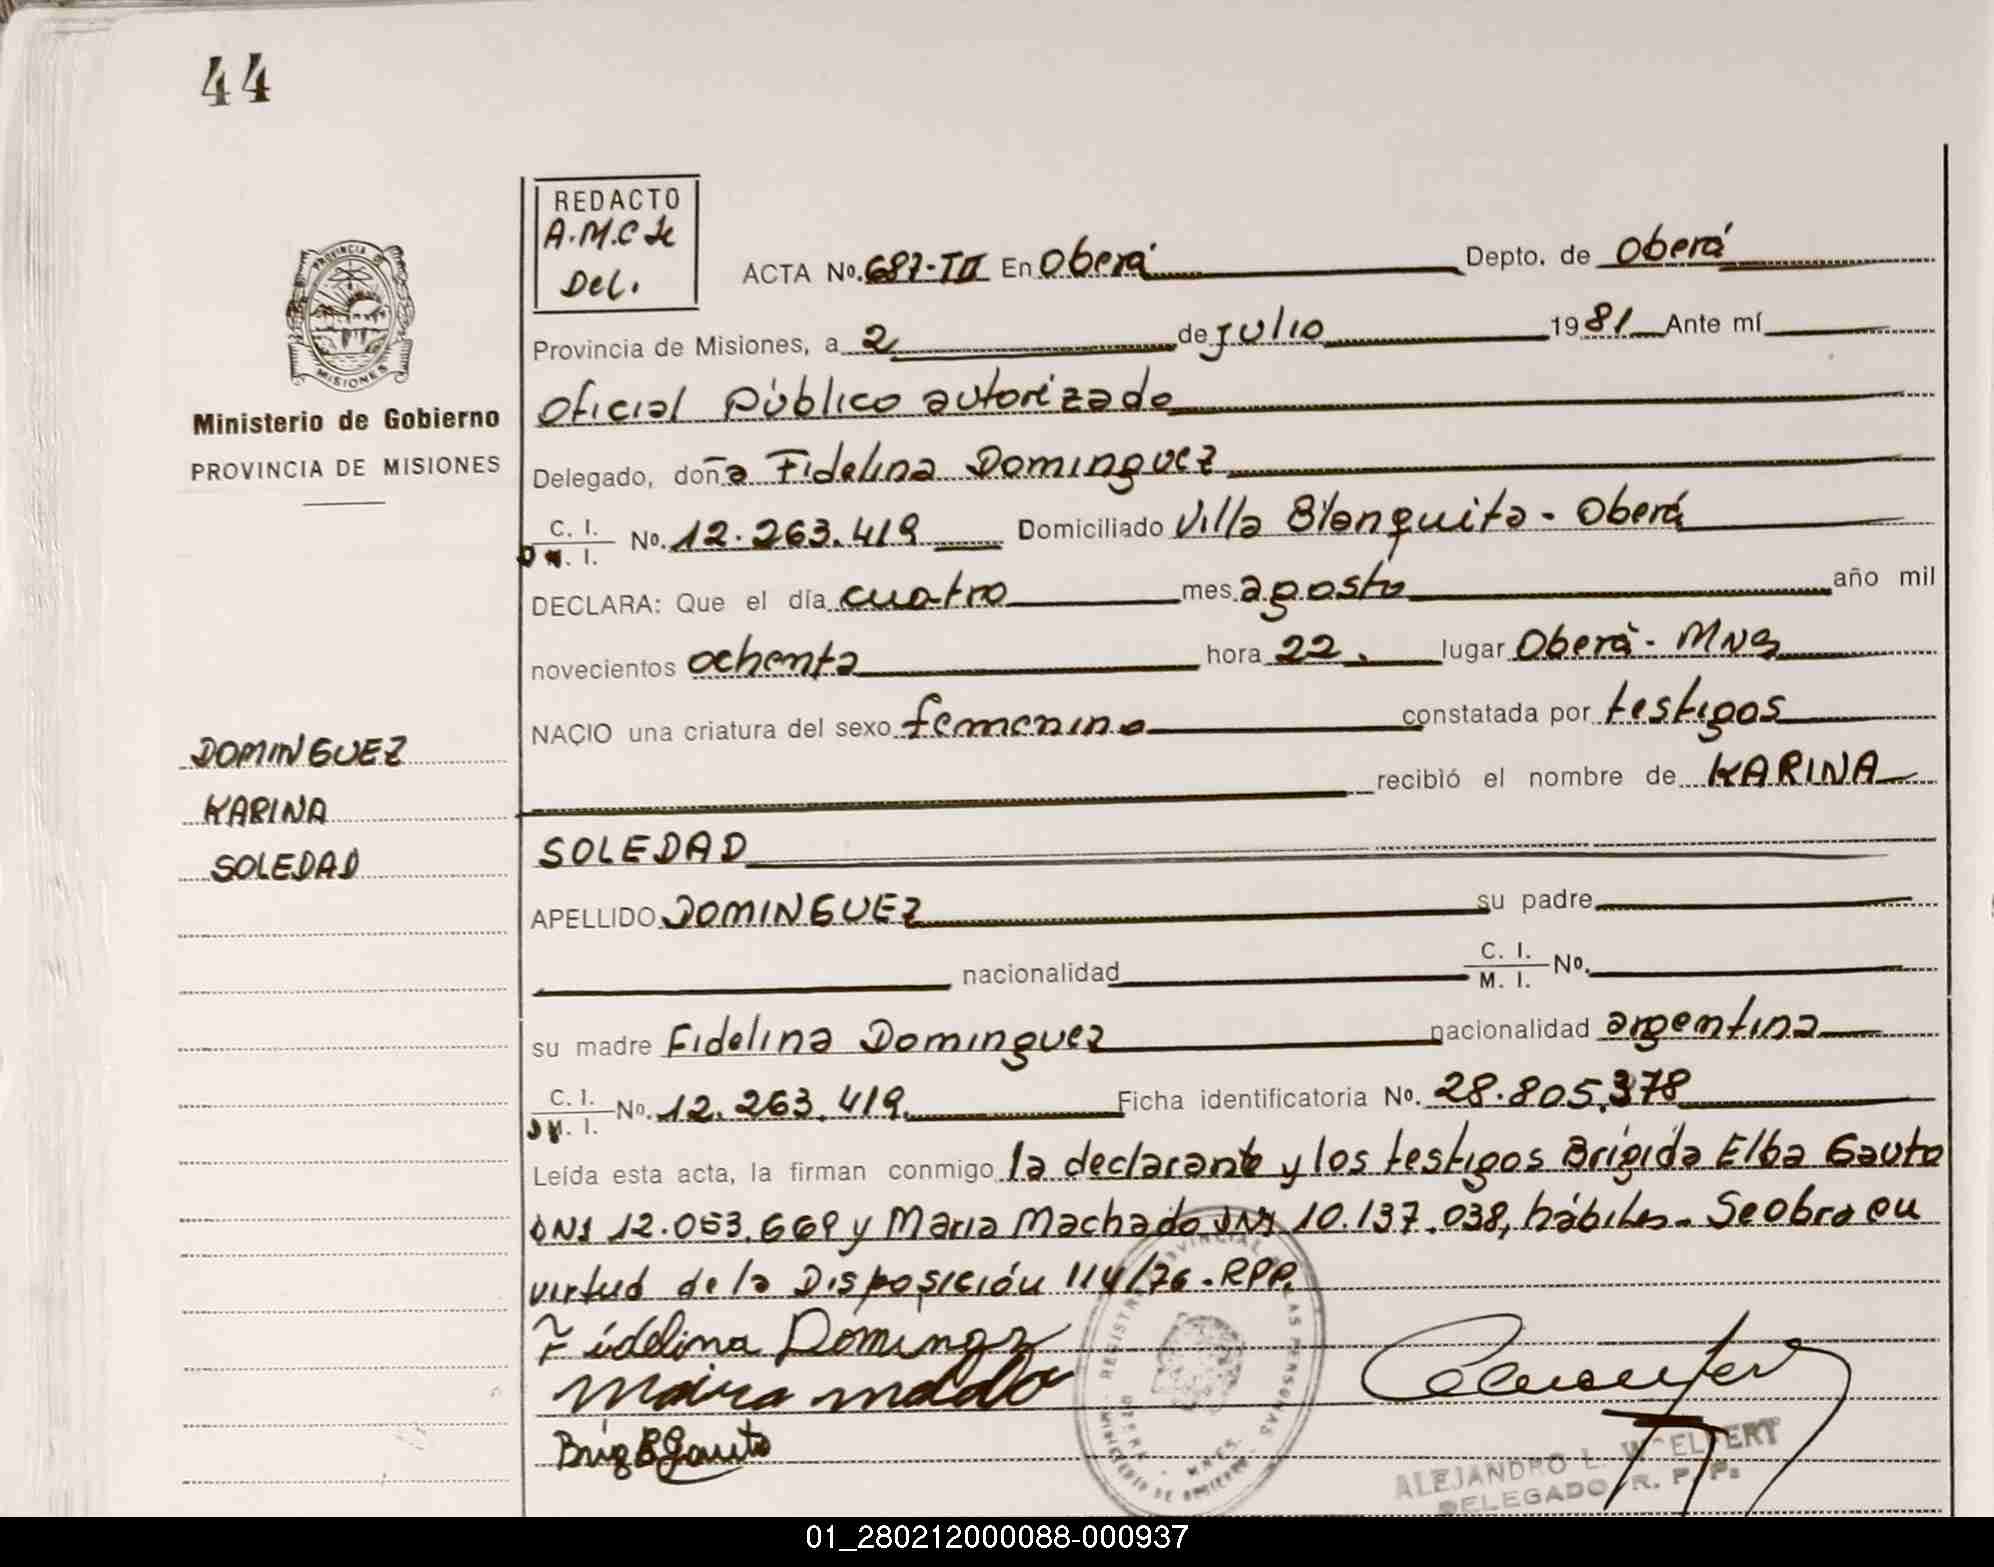 44
REDACTO
A.M.C de
Del.
PROVINCIA DE
MISIONES
Ministerio de Gobierno
PROVINCIA DE MISIONES
DOMINGUEZ
KARINA
SOLEDAD
ACTA No. 687-TII En Oberá Depto. de Oberá
Provincia de Misiones, a 2 de Julio 1981 Ante mí
Oficial Público autorizado
Delegado, doña Fidelina Dominguez
C. I. D N. I. No. 12.263.419 Domiciliado Villa Blanquita - Oberá
DECLARA: Que el día cuatro mes agosto año mil
novecientos ochenta hora 22. lugar Oberá - Mns
NACIO una criatura del sexo femenino constatada por testigos
recibió el nombre de KARINA
SOLEDAD
APELLIDO DOMINGUEZ su padre
nacionalidad C. I. M. I. No.
su madre Fidelina Dominguez nacionalidad argentina
C. I. No. 12.263.419 Ficha identificatoria No. 28.805.378
Leída esta acta, la firman conmigo la declarante y los testigos Brígida Elba Gauto
DNI 12.053.669 y Maria Machado DNI 10.137.038, hábiles. Se obra en
virtud de la Disposición 114/76 - RPP.
Fidelina Domingz
Brig E Gauto
ALEJANDRO L. WOELFERT
DELEGADO R. P. P.
01_280212000088-000937